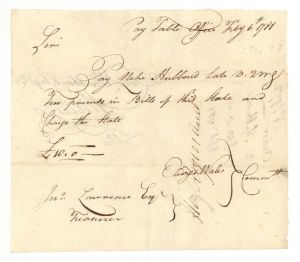 Pay Table Office Feby 6th 1781
Sir
Pay Nehe Hubbard Late D. 2 m G
pounds in Bills of this State and
Charge the State
£10.0
Eleazr Wales
Comtt
Jno. Lawrence Esqr
Treasurer